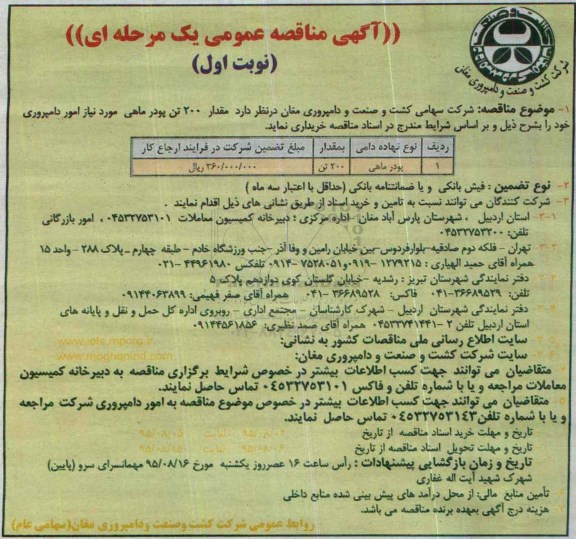 ((آگهی مناقصه عمومی یک مرحله ای))
(نوبت اول)
شرکت کشت و صنعت و دامپروری مغان
۱- موضوع مناقصه: شرکت سهامی کشت و صنعت و دامپروری مغان درنظر دارد مقدار ۲۰۰ تن پودر ماهی مورد نیاز امور دامپروری
خود را بشرح ذیل و بر اساس شرایط مندرج در اسناد مناقصه خریداری نماید.
ردیف نوع نهاده دامی بمقدار مبلغ تضمین شرکت در فرایند ارجاع کار
۱ پودر ماهی ۲۰۰ تن ۳۶۰/۰۰۰/۰۰۰ ریال
۲- نوع تضمین : فیش بانکی و یا ضمانتنامه بانکی (حداقل با اعتبار سه ماه )
۳- شرکت کنندگان می توانند نسبت به تامین و خرید اسناد از طریق نشانی های ذیل اقدام نمایند .
۳-۱- استان اردبیل ، شهرستان پارس آباد مغان -اداره مرکزی : دبیرخانه کمیسیون معاملات ۰۴۵۳۲۷۵۳۱۰۱ ، امور بازرگانی
تلفن: ۰۴۵۳۲۷۵۳۲۰۰
۳-۲- تهران - فلکه دوم صادقیه-بلوارفردوس-بین خیابان رامین و وفا آذر -جنب ورزشگاه خادم - طبقه چهارم _ پلاک ۲۸۸ - واحد ۱۵
همراه آقای حمید الهیاری : ۱۲۷۹۲۱۵ -۰۹۱۹و۷۵۲۸۰۵۱ -۰۹۱۴ تلفکس ۴۴۹۶۱۹۸۰ -۰۲۱
۳-۳- دفتر نمایندگی شهرستان تبریز : رشدیه -خیابان گلستان کوی دوازدهم پلاک ۵
تلفن: ۳۶۶۸۹۵۲۹-۰۴۱ فاکس: ۳۶۶۸۹۵۲۸ -۰۴۱ همراه آقای صفر فهیمی: ۰۹۱۴۴۰۶۳۸۹۹
۳-۴- دفتر نمایندگی شهرستان اردبیل - شهرک کارشناسان - مجتمع اداری - روبروی اداره کل حمل و نقل و پایانه های
استان اردبیل تلفن ۲ -۰۴۵۳۳۷۴۱۴۴۱ همراه آقای صمد نظیری: ۰۹۱۴۴۵۶۱۸۵۶
سایت اطلاع رسانی ملی مناقصات کشور به نشانی: www.iets.mporg.ir
۳-۶- سایت شرکت کشت و صنعت و دامپروری مغان: www.moghanind.com
متقاضیان می توانند جهت کسب اطلاعات بیشتر در خصوص شرایط برگزاری مناقصه به دبیرخانه کمیسیون
معاملات مراجعه و یا با شماره تلفن و فاکس ۰۴۵۳۲۷۵۳۱۰۱ تماس حاصل نمایند.
متقاضیان می توانند جهت کسب اطلاعات بیشتر در خصوص موضوع مناقصه به امور دامپروری شرکت مراجعه
و یا با شماره تلفن۰۴۵۳۲۷۵۳۱۴۳ تماس حاصل نمایند.
تاریخ و مهلت خرید اسناد مناقصه از تاریخ
تاریخ و مهلت تحویل اسناد مناقصه از تاریخ
تاریخ و زمان بازگشایی پیشنهادات : رأس ساعت ۱۶ عصرروز یکشنبه مورخ ۹۵/۰۸/۱۶ مهمانسرای سرو (پایین)
شهرک شهید آیت اله غفاری
تأمین منابع مالی: از محل درآمد های پیش بینی شده منابع داخلی
هزینه درج آگهی بعهده برنده مناقصه می باشد.
روابط عمومی شرکت کشت وصنعت ودامپروری مغان(سهامی عام)